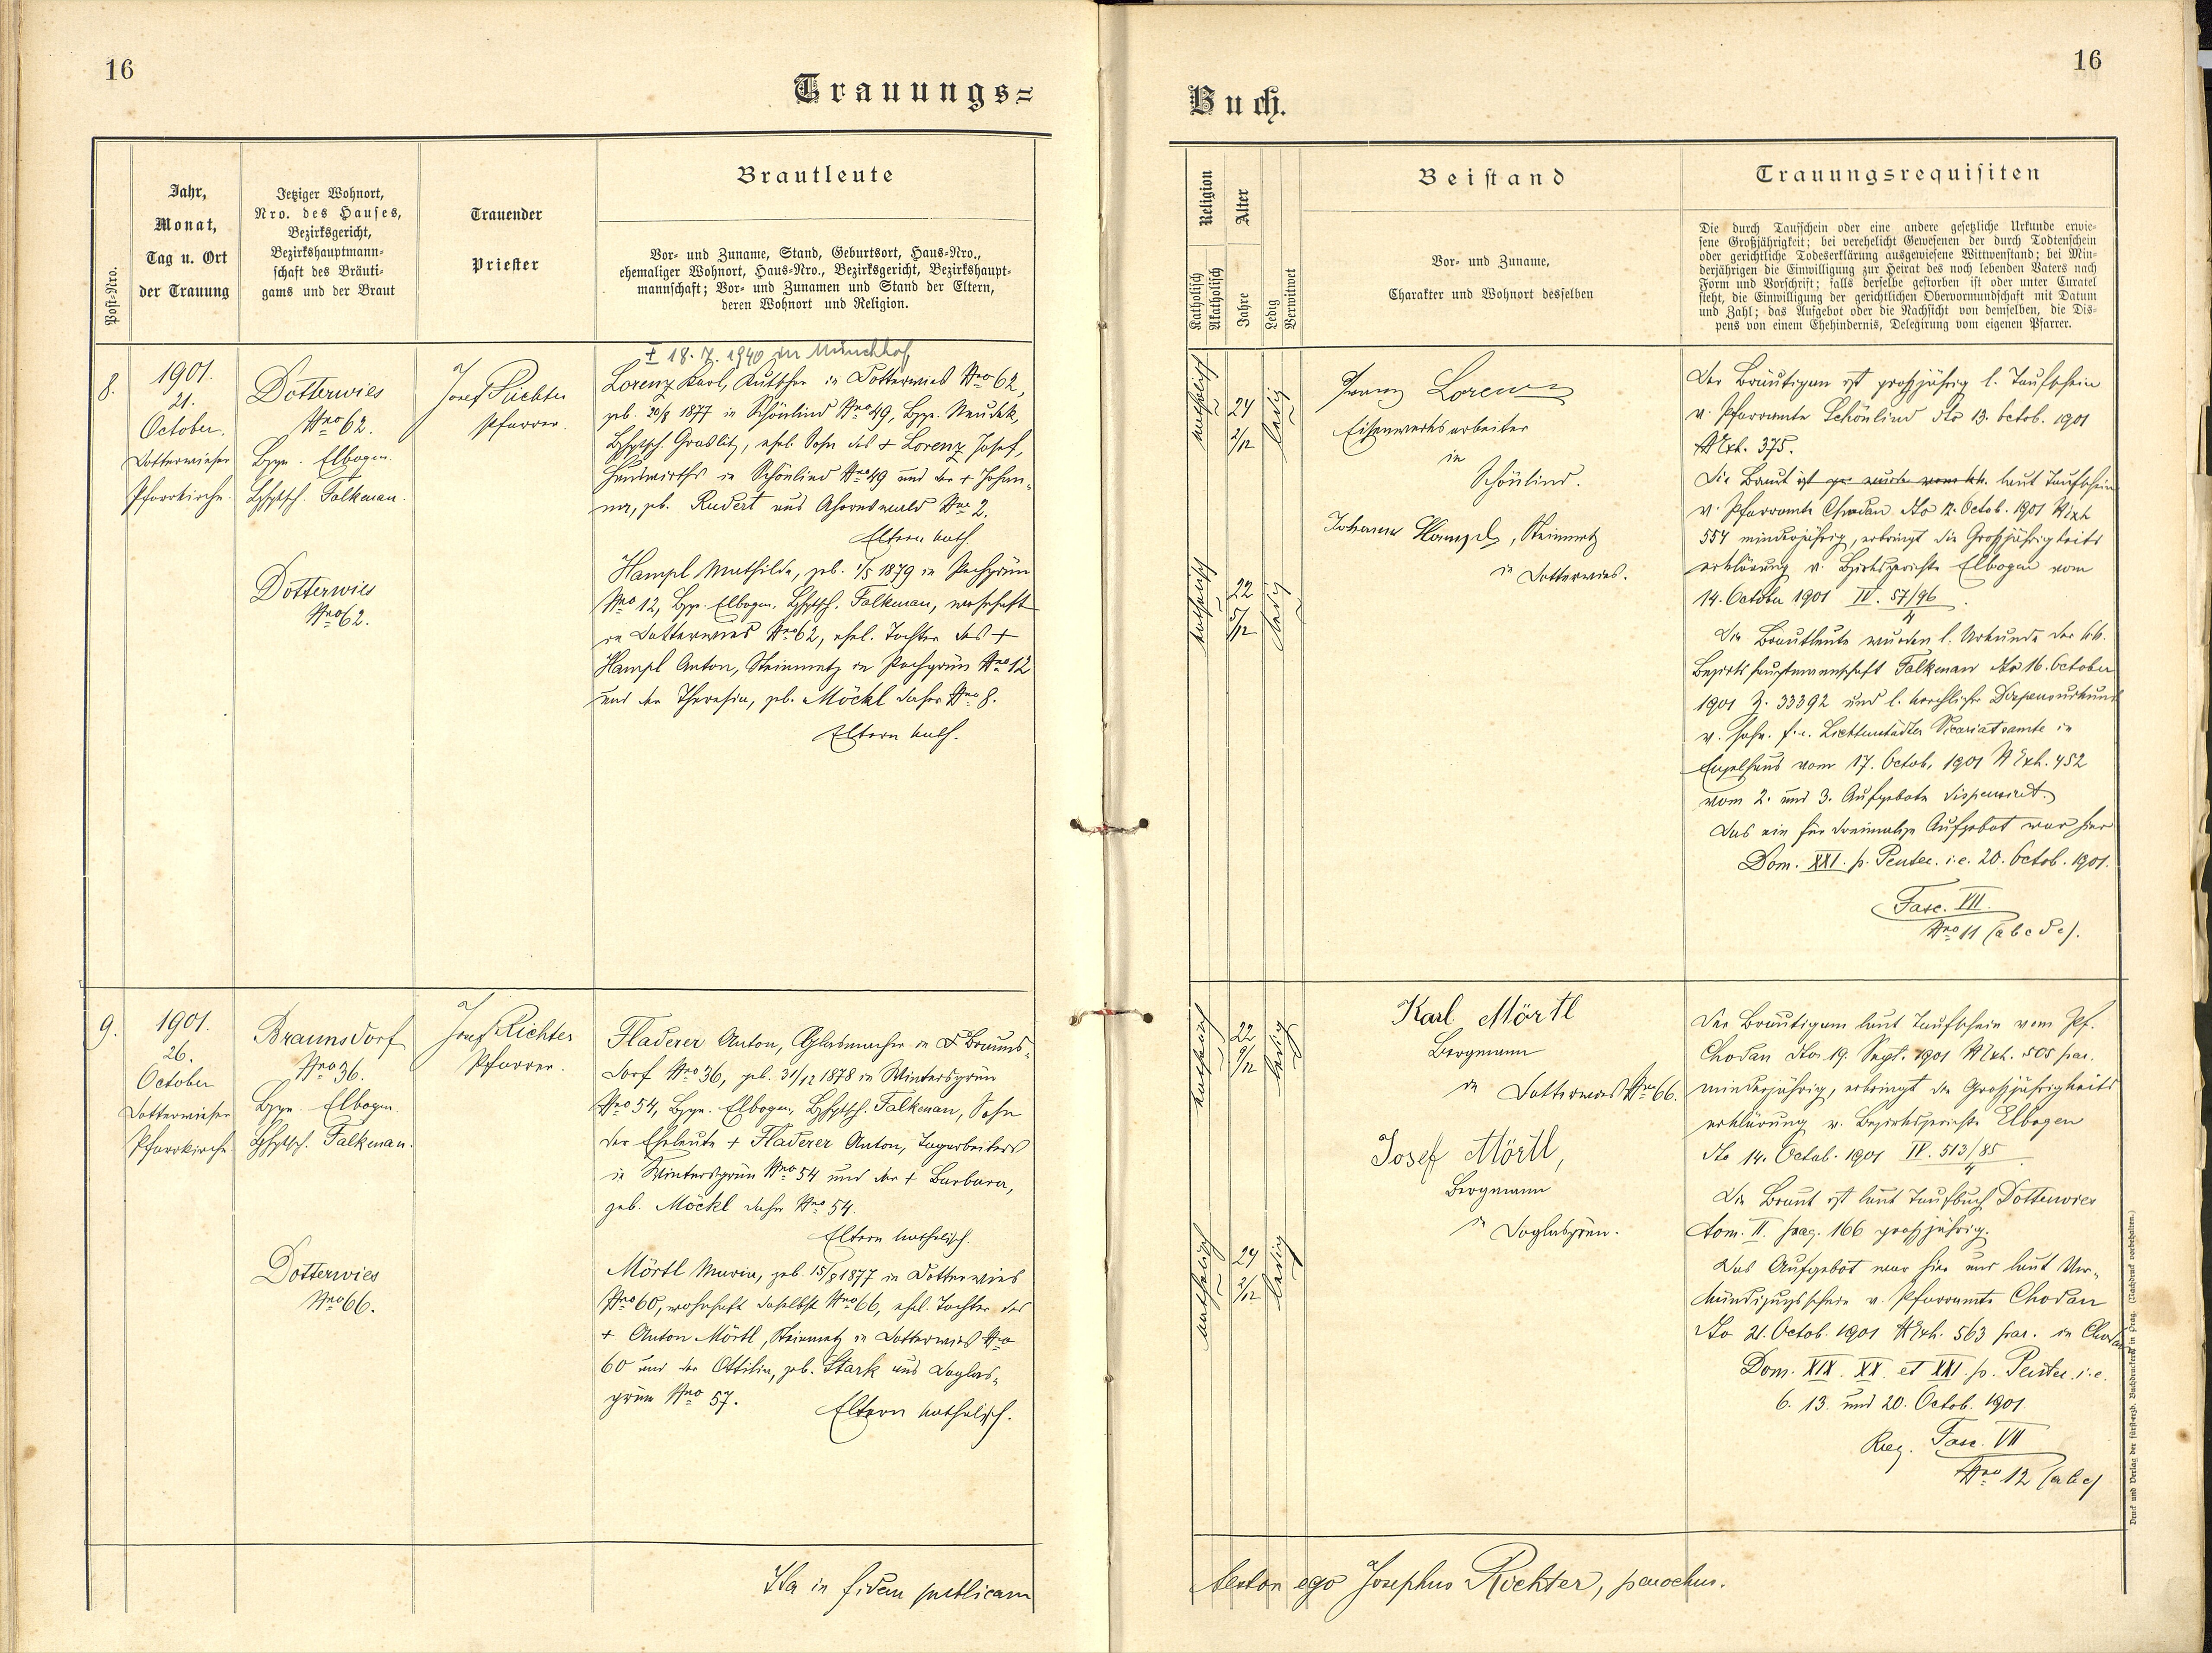 16
Trauungs=
Post=Nro.
Jahr,
Monat,
Tag u. Ort
der Trauung
Jetziger Wohnort,
Nro. des Hauses,
Bezirksgericht,
Bezirkshauptmann=
schaft des Bräuti=
gams und der Braut
Trauender
Priester
Brautleute
Vor= und Zuname, Stand, Geburtsort, Haus=Nro.,
ehemaliger Wohnort, Haus=Nro., Bezirksgericht, Bezirkshaupt=
mannschaft; Vor= und Zunamen und Stand der Eltern,
deren Wohnort und Religion.
8.
1901.
21.
October.
Dotterwieser
Pfarrkirche.
Dotterwies
Nro 62.
Bzg. Elbogen.
Bhptsch. Falkenau.
Dotterwies
Nro 62.
Josef Richter
Pfarrer.
† 18. 7. 1940 in Münchhof
Lorenz Karl, Kutscher in Dotterwies Nro 62,
geb. 20/8 1877 in Schönlind Nro 49, Bzg. Neudek,
Bhptsch. Graslitz, ehel. Sohn des † Lorenz Josef,
in Schönlind Nro 49 und der † Johan=
na, geb. Rudert aus Ahornswald Nro 2.
Eltern kath.
Hampl Mathilde, geb. 1/5 1879 in Pechgrün
Nro 12, Bzg. Elbogen, Bhptsch. Falkenau, wohnhaft
in Dotterwies Nro 62, ehel. Tochter des †
Hampl Anton, Steinmetz in Pechgrün Nro 12
und der Theresia, geb. Möckl daher Nro 8.
Eltern kath.
9.
1901.
26.
October
Dotterwieser
Pfarrkirche
Braunsdorf
Nro 36.
Bzg. Elbogen
Bhptsch. Falkenau.
Dotterwies
Nro 66.
Josef Richter
Pfarrer.
Fladerer Anton, Glasmacher in Brauns=
dorf Nro 36, geb. 31/12 1878 in Wintersgrün
Nro 54, Bzg. Elbogen, Bhptsch. Falkenau, Sohn
der Eheleute † Fladerer Anton, Tagarbeiters
in Wintersgrün Nro 54 und der † Barbara,
geb. Möckl daher Nro 54.
Eltern katholisch.
Mörtl Maria, geb. 15/8 1877 in Dotterwies
Nro 60, wohnhaft daselbst Nro 66, ehel. Tochter des
† Anton Mörtl, Steinmetz in Dotterwies Nro
60 und der Ottilia, geb. Stark aus Doglas=
grün Nro 57.
Eltern katholisch.
Ita in fidem publicam
16
Buch.
Religion
Katholisch
Akatholisch
Alter
Jahre
Ledig
Verwitwet
Beistand
Vor= und Zuname,
Charakter und Wohnort desselben
Trauungsrequisiten
Die durch Taufschein oder eine andere gesetzliche Urkunde erwie=
sene Großjährigkeit; bei verehelicht Gewesenen der durch Todtenschein
oder gerichtliche Todeserklärung ausgewiesene Wittwenstand; bei Min=
derjährigen die Einwilligung zur Heirat des noch lebenden Vaters nach
Form und Vorschrift; falls derselbe gestorben ist oder unter Curatel
steht, die Einwilligung der gerichtlichen Obervormundschaft mit Datum
und Zahl; das Aufgebot oder die Nachsicht von demselben, die Dis=
pens von einem Ehehindernis, Delegirung vom eigenen Pfarrer.
katholisch
24
2/12
ledig
katholisch
22
5/12
ledig
Franz Lorenz
Eisenwerksarbeiter
in
Schönlind.
Johann Hampel, Steinmetz
in Dotterwies.
Der Bräutigam ist großjährig l. Taufschein
v. Pfarramte Schönlind dto 13. Octob. 1901
N Exh. 375.
Die Braut ist laut Taufschein
v. Pfarramte Chodau dto 12. Octob. 1901 N Exh
554 minderjährig, erbringt die Großjährigkeits
erklärung v. Bezirksgerichte Elbogen vom
14. October 1901 IV. 57/96
4
Die Brautleute wurden l. Urkunde der k.k.
Bezirkshauptmannschaft Falkenau dto 16. October
1901 Z. 33392 und l. kirchlicher Dispensurkunde
v. hochw. f.e. Lichtenstadter Vicariatsamte in
Engelhaus vom 17. Octob. 1901 N Exh. 452
vom 2. und 3. Aufgebote dispensirt.
Das ein für dreimalige Aufgebot war hier
Dom. XXI. p. Pentec. i.e. 20. Octob. 1901.
Fasc. VII.
Nro 11 (abcde).
katholisch
22
9/12
ledig
katholisch
24
2/12
ledig
Karl Mörtl
Bergmann
in Dotterwies Nro 66.
Josef Mörtl,
Bergmann
in Doglasgrün.
Der Bräutigam laut Taufschein vom Pf.
Chodau dto 19. Sept. 1901 N Exh. 505 par.
minderjährig, erbringt die Großjährigkeits
erklärung v. Bezirksgerichte Elbogen
dto 14. Octob. 1901 IV. 513/85
4
Die Braut ist laut Taufbuch Dotterwies
tom. II. pag. 166 großjährig.
Das Aufgebot war hier und laut Ver=
kündigungsschein v. Pfarramte Chodau
dto 21. Octob. 1901 N Exh. 563 par. in Chodau
Dom. XIX. XX. et XXI. p. Pentec. i.e.
6. 13. und 20. Octob. 1901
Reg. Fasc. VII
Nro 12 (abc)
testor ego Josephus Richter, parochus.
Druck und Verlag der fürst=erzb. Buchdruckerei in Prag. (Nachdruck vorbehalten.)